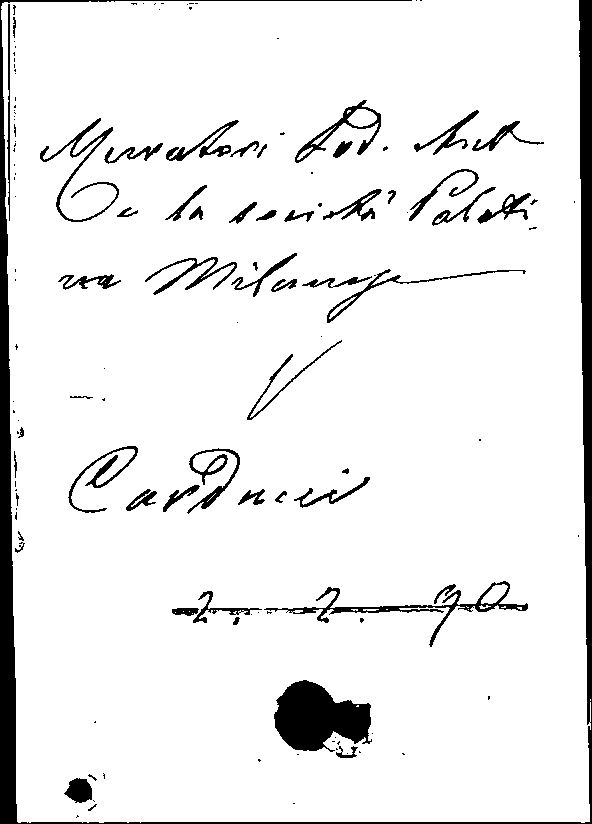 Muratori Lod. Ant
e la società Palati
na Milanese
V
Carducci
2. 2. 90